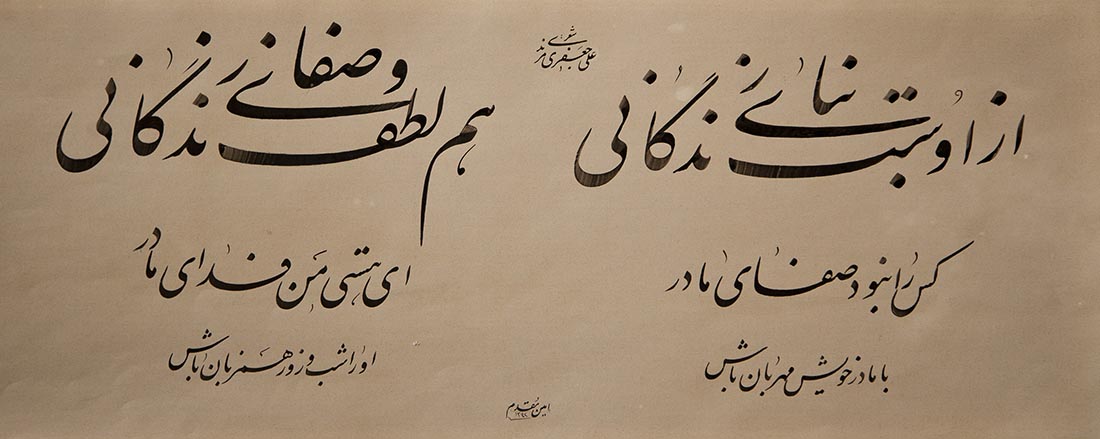 شعر
علی جعفری مرند
از اوست بنای زندگانی
هم لطف و صفای زندگانی
کس را نبود صفای مادر
ای هستی من فدای مادر
با مادر خویش مهربان باش
او را شب و روز همزبان باش
امین مقدم